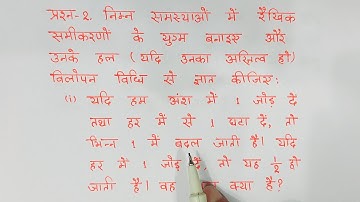 प्रश्न-2. निम्न समस्याओं में रैखिक
समीकरणों के युग्म बनाइए और
उनके हल (यदि उनका अस्तित्व हो)
विलोपन विधि से ज्ञात कीजिए:
(i) यदि हम अंश में 1 जोड़ दें
तथा हर में से 1 घटा दें, तो
भिन्न 1 में बदल जाती है। यदि
हर में 1 जोड़ दें, तो यह 1/2 हो
जाती है। वह क्या है?